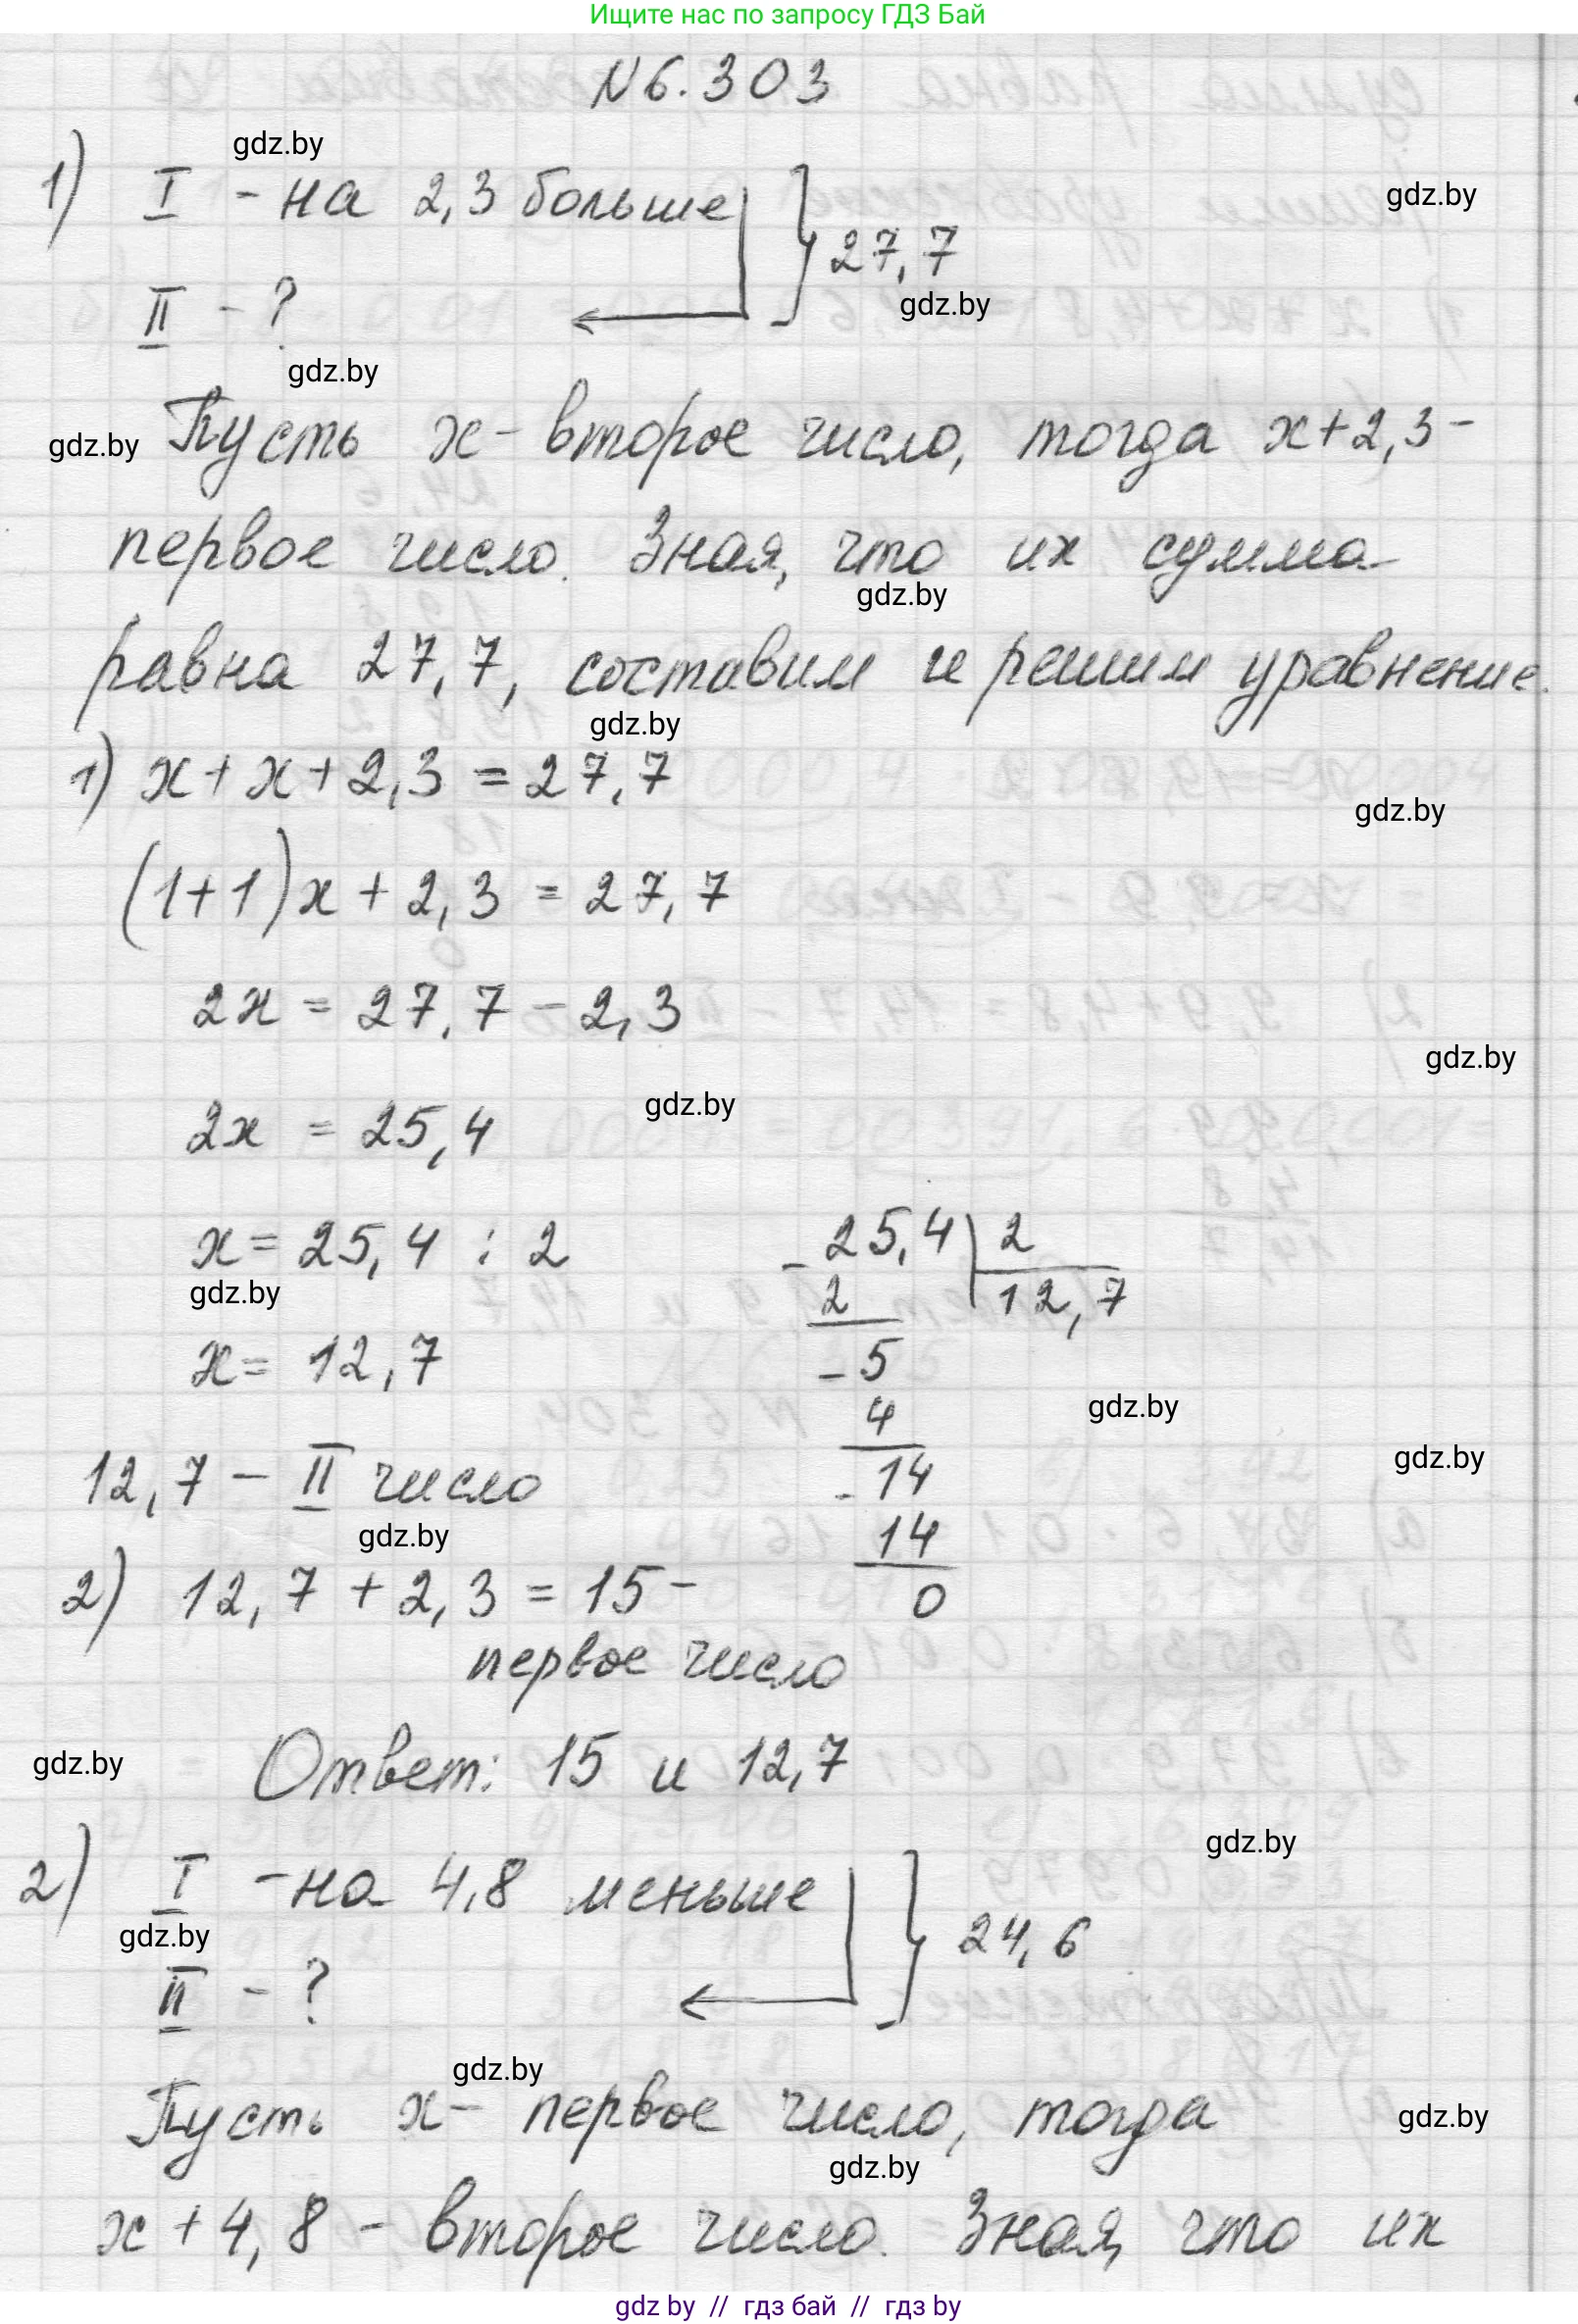 Ищите нас по запросу ГДЗ Бай
N6.303
gdz.by
1) I - на 2,3 больше } 27,7
gdz.by
gdz.by
II - ?
gdz.by
gdz.by
Пусть x - второе число, тогда x+2,3 -
первое число. Зная, что их сумма
gdz.by
равна 27,7, составим и решим уравнение.
gdz.by
1) x+x+2,3 = 27,7
gdz.by
(1+1)x + 2,3 = 27,7
2x = 27,7 - 2,3
gdz.by
gdz.by
2x = 25,4
x = 25,4 : 2
- 25,4 | 2
gdz.by
2 12,7
x = 12,7
- 5
4
gdz.by
gdz.by
12,7 - II число
- 14
gdz.by
14
2) 12,7 + 2,3 = 15 -
0
первое число
gdz.by
Ответ: 15 и 12,7
gdz.by
2) I - на 4,8 меньше } 24,6
gdz.by
II - ?
gdz.by
Пусть x - первое число, тогда
gdz.by
gdz.by
x + 4,8 - второе число. Зная, что их
gdz by // гдз бай // гдз by